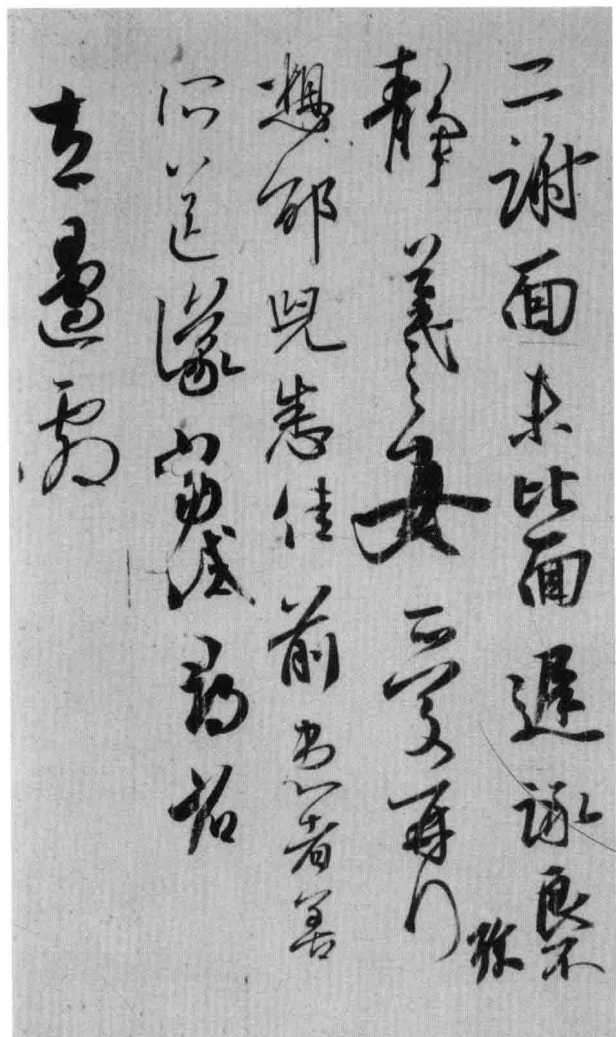 二謝面未比面遲詠良不
珍
靜羲之女愛再拜
想邰兒悉佳前患者善
所送議當試尋省
左邊劇